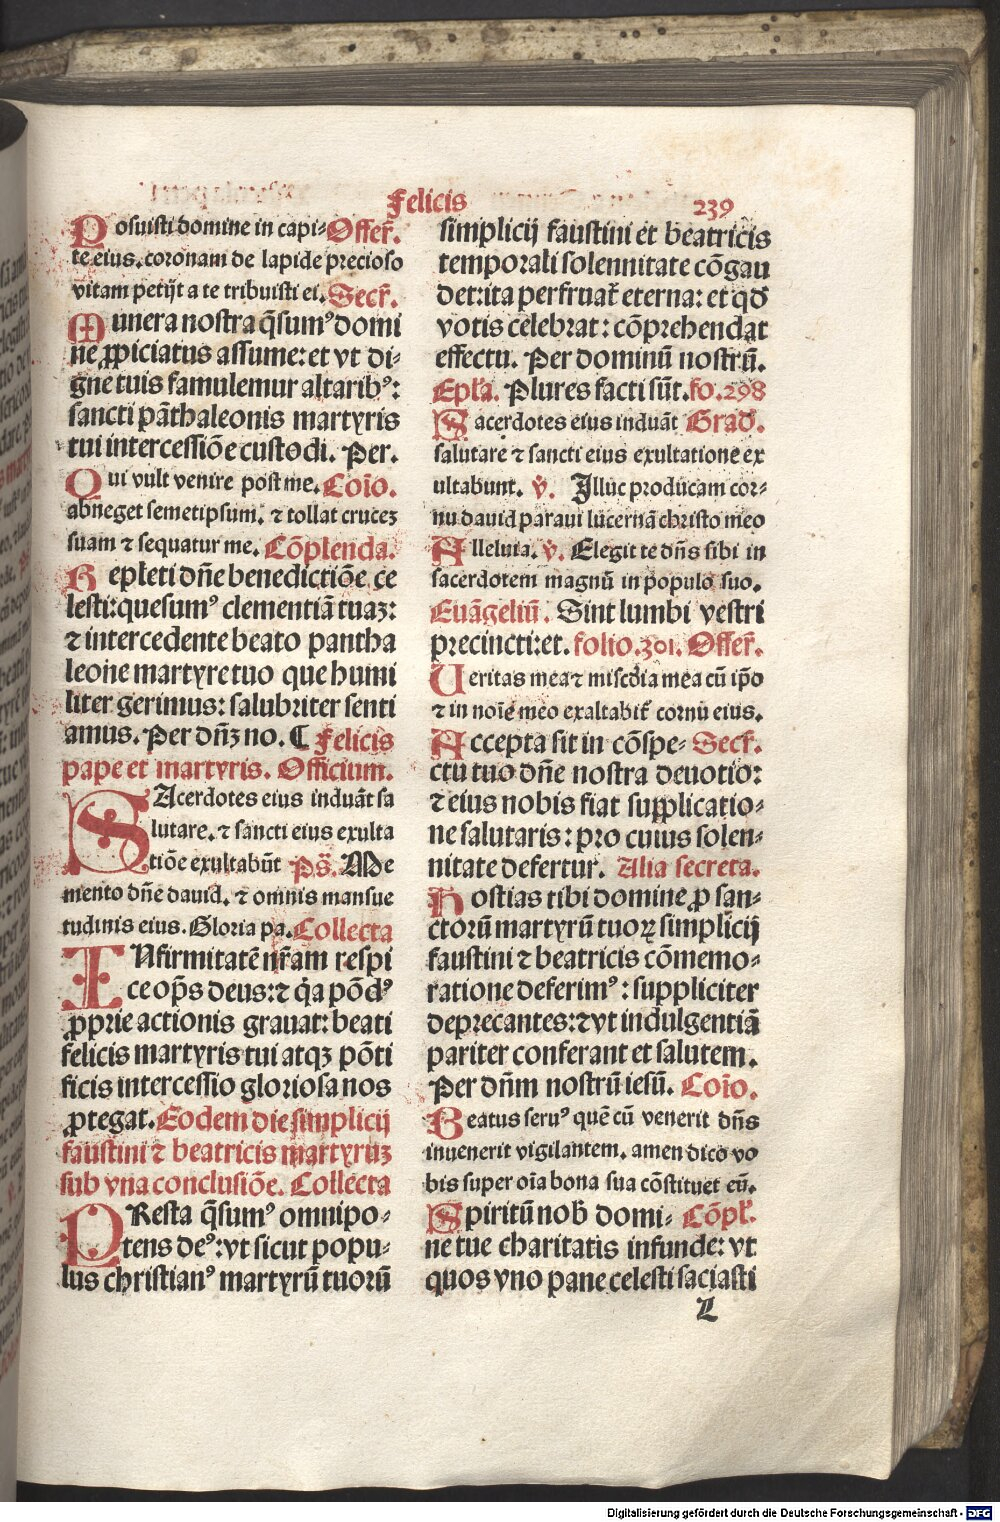 Felicis
239
Posuisti domine in capi⸗ Offer̃.
te eius. coronam de lapide precioso
vitam petijt a te tribuisti ei. Secr̃.
Munera nostra q̃sumꝰ domi
ne ꝓpiciatus assume: et vt di⸗
gne tuis famulemur altaribꝰ:
sancti pāthaleonis martyris
tui intercessiōe custodi. Per.
Qui vult venire post me. Coīo.
abneget semetipsum. ⁊ tollat crucez
suam ⁊ sequatur me. Cōplenda.
Repleti dñe benedictiōe ce
lesti: quesumꝰ clementiā tuaz:
⁊ intercedente beato pantha
leone martyre tuo que humi
liter gerimus: salubriter senti
amus. Per dñz no. ¶ Felicis
pape et martyris. Officium.
SAcerdotes eius induāt sa
lutare. ⁊ sancti eius exulta
tiōe exultabūt Ps̃. Me
mento dñe dauid. ⁊ omnis mansue
tudinis eius. Gloria pa. Collecta
INfirmitatē nr̃am respi
ce op̃s deus: ⁊ q̃a pōdꝰ
ꝓprie actionis grauat: beati
felicis martyris tui atqꝫ pōti
ficis intercessio gloriosa nos
ꝓtegat. Eodem die simplicij
faustini ⁊ beatricis martyrũz
sub vna conclusiōe. Collecta
PResta q̃sumꝰ omnipo⸗
tens deꝰ: vt sicut popu⸗
lus christianꝰ martyrū tuorū
simplicij faustini et beatricis
temporali solennitate cōgau
det: ita perfruat̃ eterna: et qđ
votis celebrat: cōprehendat
effectu. Per dominū nostrū.
Epl̃a. Plures facti sūt. fo. 298
Sacerdotes eius induāt Grad̃.
salutare ⁊ sancti eius exultatione ex
ultabunt. v̄. Illuc producam cor⸗
nu dauid paraui lucernā christo meo
Alleluia. v̄. Elegit te dñs sibi in
sacerdotem magnū in populo suo.
Euāgeliū. Sint lumbi vestri
precincti: et. folio. 301. Offer̃.
Ueritas mea ⁊ miscđia mea cū ip̃o
⁊ in noīe meo exaltabit̃ cornu eius.
Accepta sit in cōspe⸗ Secr̃.
ctu tuo dñe nostra deuotio:
⁊ eius nobis fiat supplicatio⸗
ne salutaris: pro cuius solen⸗
nitate defertur. Alia secreta.
Hostias tibi domine ꝓ san⸗
ctorū martyrū tuoꝝ simplicij
faustini ⁊ beatricis cōmemo⸗
ratione deferimꝰ: suppliciter
deprecantes: ⁊ vt indulgentiā
pariter conferant et salutem.
Per dñm nostrū iesū. Coīo.
Beatus seruꝰ quē cū venerit dñs
inuenerit vigilantem. amen dico vo
bis super oīa bona sua cōstituet eū.
Spiritū nob̃ domi⸗ Cōpl̃.
ne tue charitatis infunde: vt
quos vno pane celesti saciasti
L
Digitalisierung gefördert durch die Deutsche Forschungsgemeinschaft - DFG